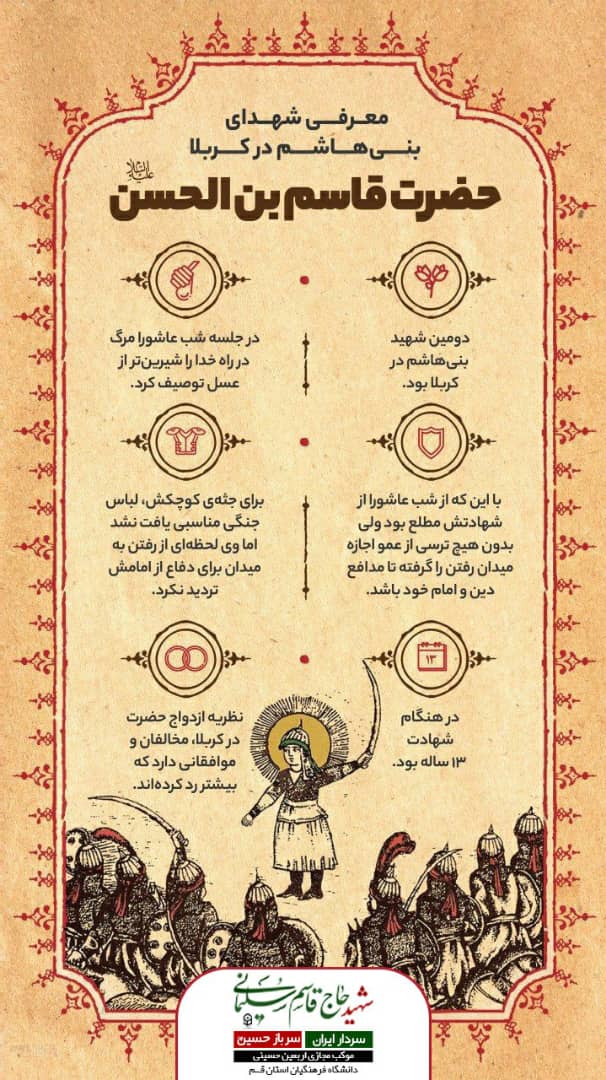 معرفی شهدای
بنی‌هاشم در کربلا
حضرت قاسم بن الحسن
علیه السلام
دومین شهید
بنی‌هاشم در
کربلا بود.
در جلسه شب عاشورا مرگ
در راه خدا را شیرین‌تر از
عسل توصیف کرد.
با این که از شب عاشورا از
شهادتش مطلع بود ولی
بدون هیچ ترسی از عمو اجازه
میدان رفتن را گرفته تا مدافع
دین و امام خود باشد.
برای جثه‌ی کوچکش، لباس
جنگی مناسبی یافت نشد
اما وی لحظه‌ای از رفتن به
میدان برای دفاع از امامش
تردید نکرد.
۱۳
در هنگام
شهادت
۱۳ ساله بود.
نظریه ازدواج حضرت
در کربلا، مخالفان و
موافقانی دارد که
بیشتر رد کرده‌اند.
شهید حاج قاسم سلیمانی
سردار ایران سرباز حسین
موکب مجازی اربعین حسینی
دانشگاه فرهنگیان استان قم